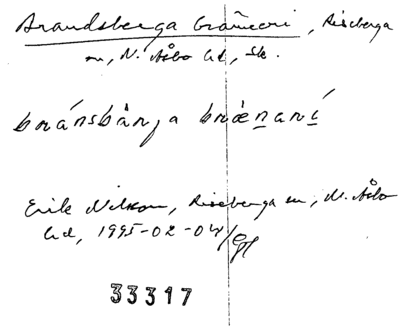 Brandsberga bränneri, Riseberga
sn, N. Åsbo hd, Sk.
bránsbärja brænarí
Erik Nilsson, Riseberga sn, N. Åsbo
hd, 1995-02-04/
33317